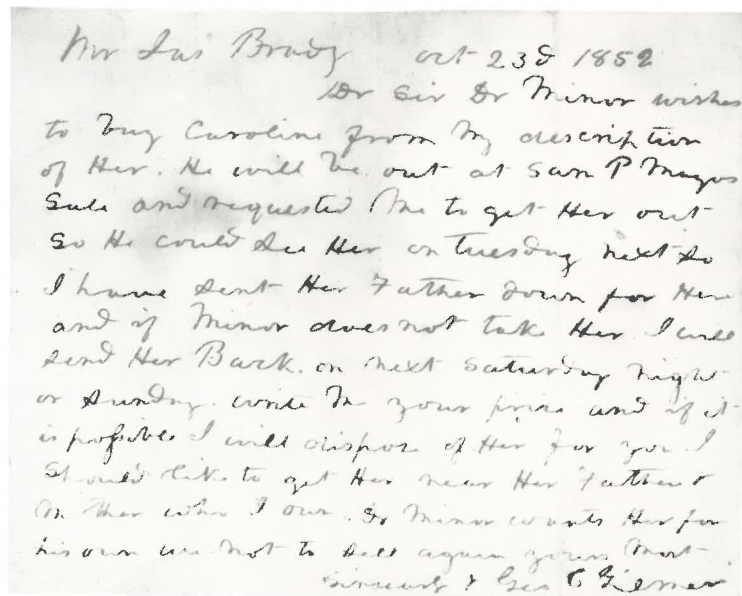 Mr Jas Brady Oct 23d 1852
Dr Sir Dr Minor wishes
to buy Caroline from my description
of Her. He will be out at Sam P Mayos
Sale and requested Me to get Her out
So He could See Her on Tuesday next So
I have Sent Her Father down for Her
and if Minor does not take Her I will
Send Her Back on next Saturday night
or Sunday. write Me your price and if it
is possible I will dispose of Her for you I
Should like to get Her near Her Father &
Mother who I own. Dr Minor wants Her for
his own use Not to Sell again yours Most
Sincerely Geo C Gilmer